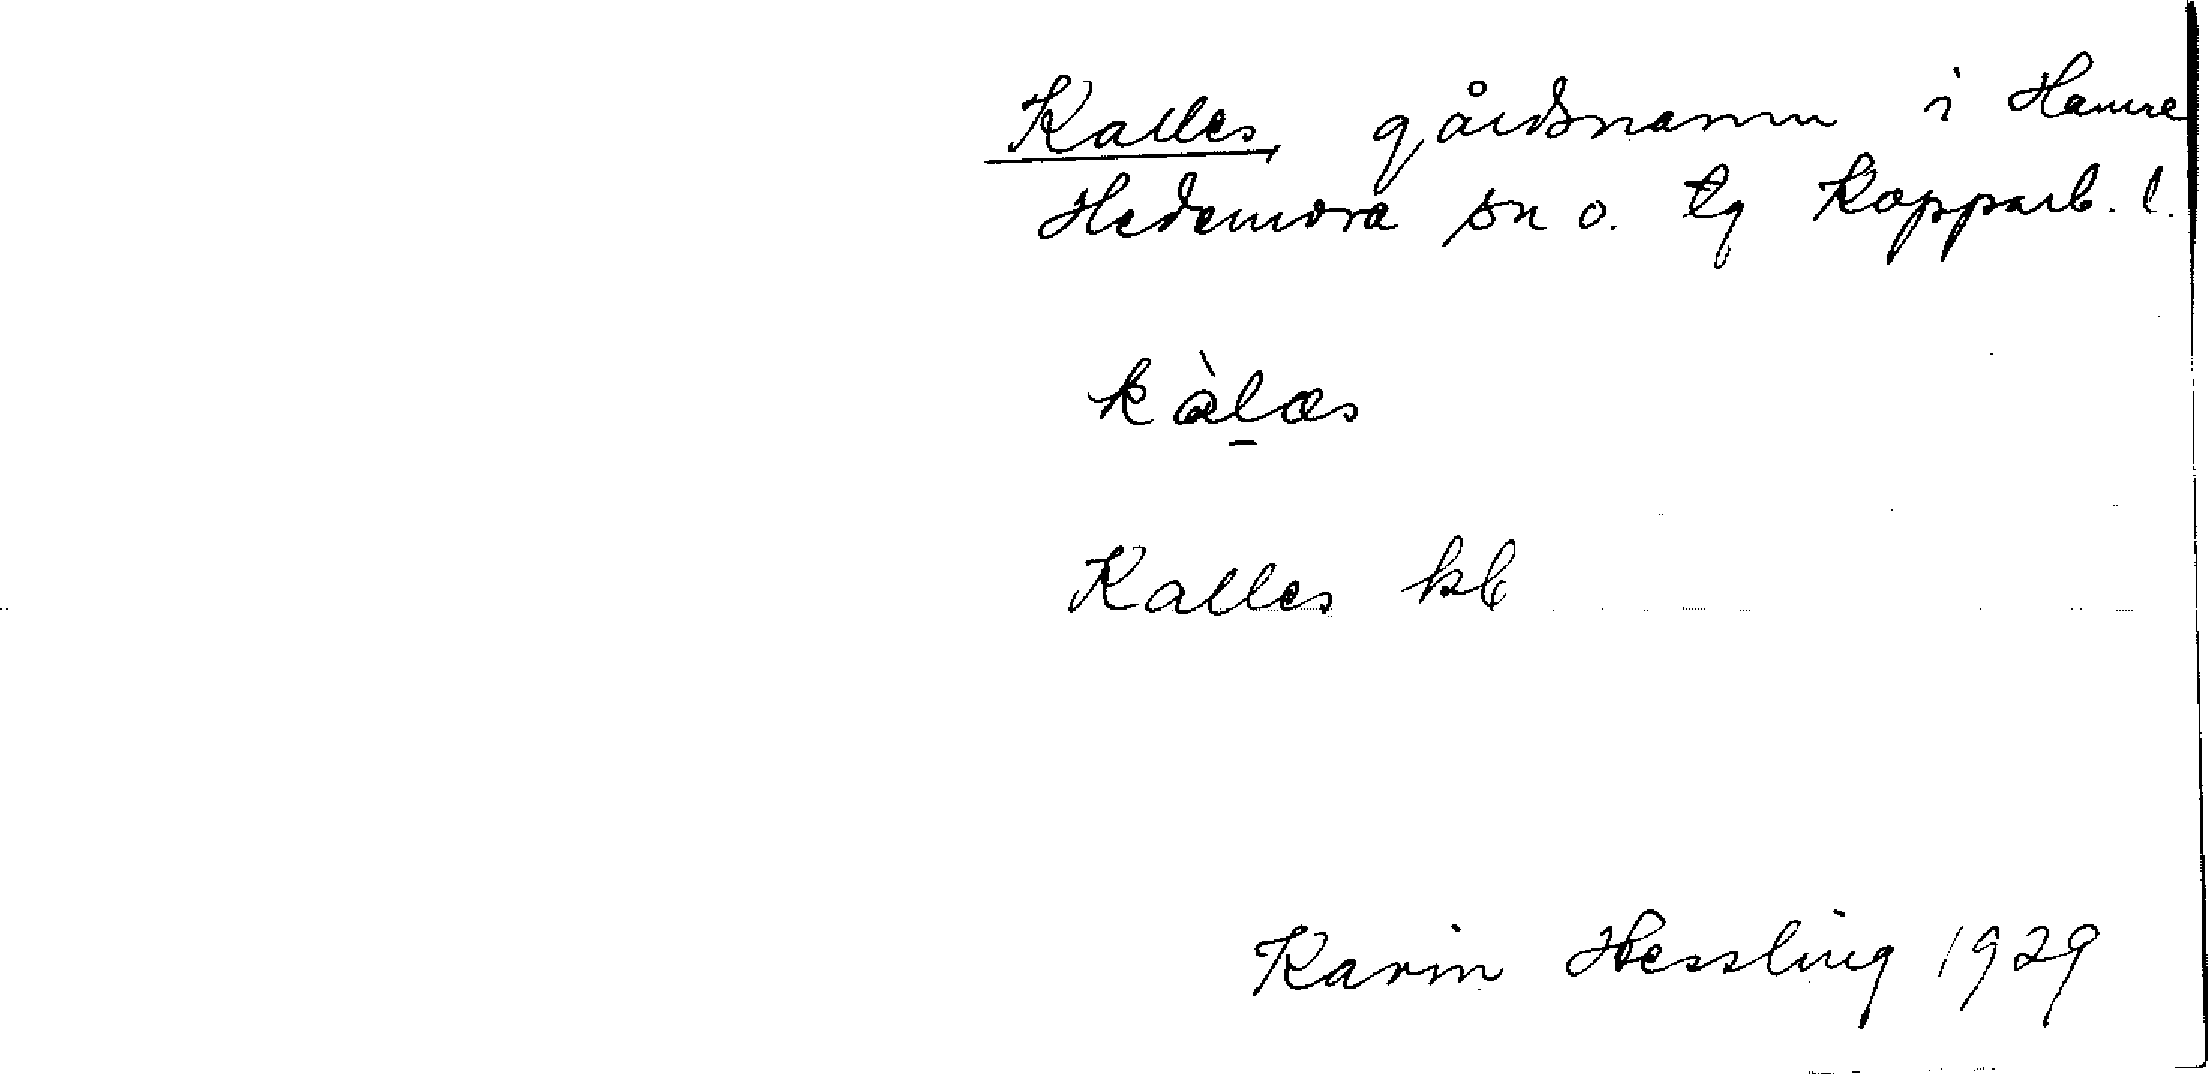 Kalles, gårdsnamn i Hamre
Hedemora sn o. tg Kopparb. l.
kàl̠æs
Kalles kb
Karin Hessling 1929